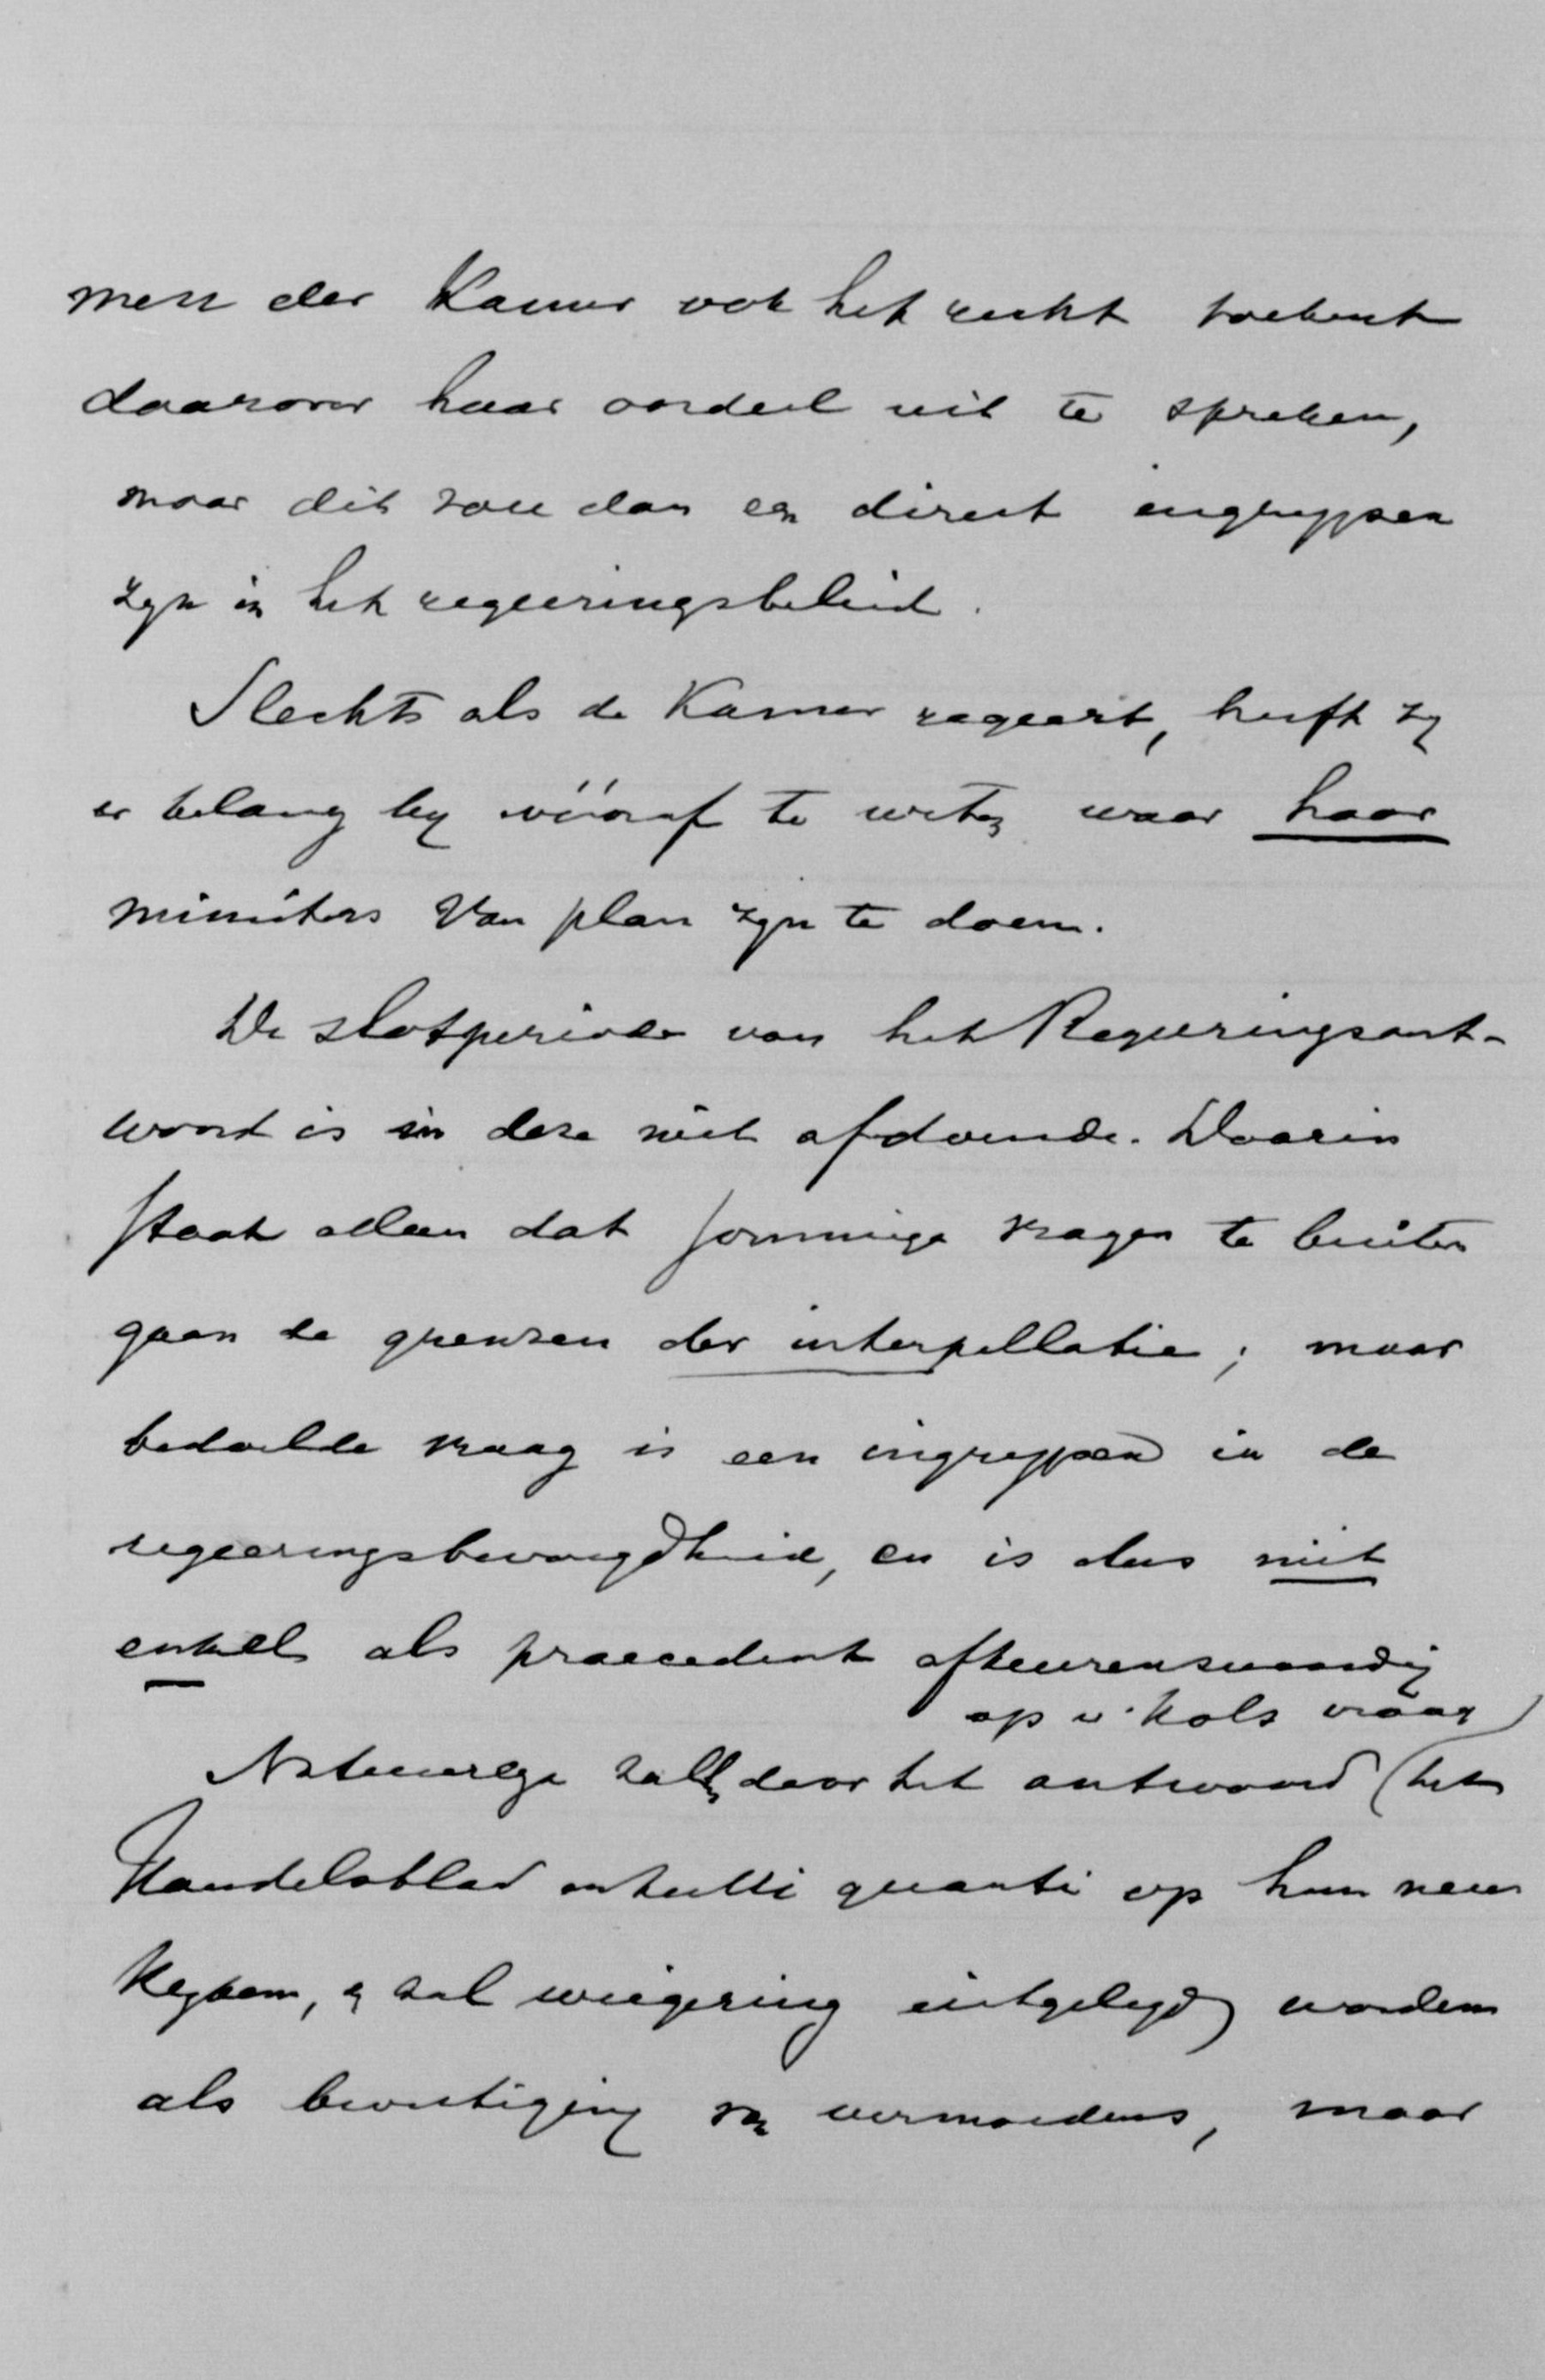 men der Kamer ook het recht toekent
daarover haar oordeel uit te spreken,
maar dit zou dan een direct ingrypen
zyn in het regeeringsbeleid.
Slechts als de Kamer regeert, heeft zy
er belang by vóóraf te weten waar haar
ministers van plan zyn te doen.
De slotperiode van het Regeeringsant-
woord is in deze niet afdoende. Daarin
staat alleen dat sommige vragen te buiten
gaan de grenzen der interpellatie; maar
bedoelde vraag is een ingrypen in de
regeeringsbevoegdheid, en is dus niet
enkel als praecedent afkeurenswaardig
op v. Kols vraag
Natuurlyk zal door het antwoord (het
Handelsblad en tutti quanti op hun neus
kyken, en zal weigering uitgelegd worden
als bevestiging van vermoedens, maar